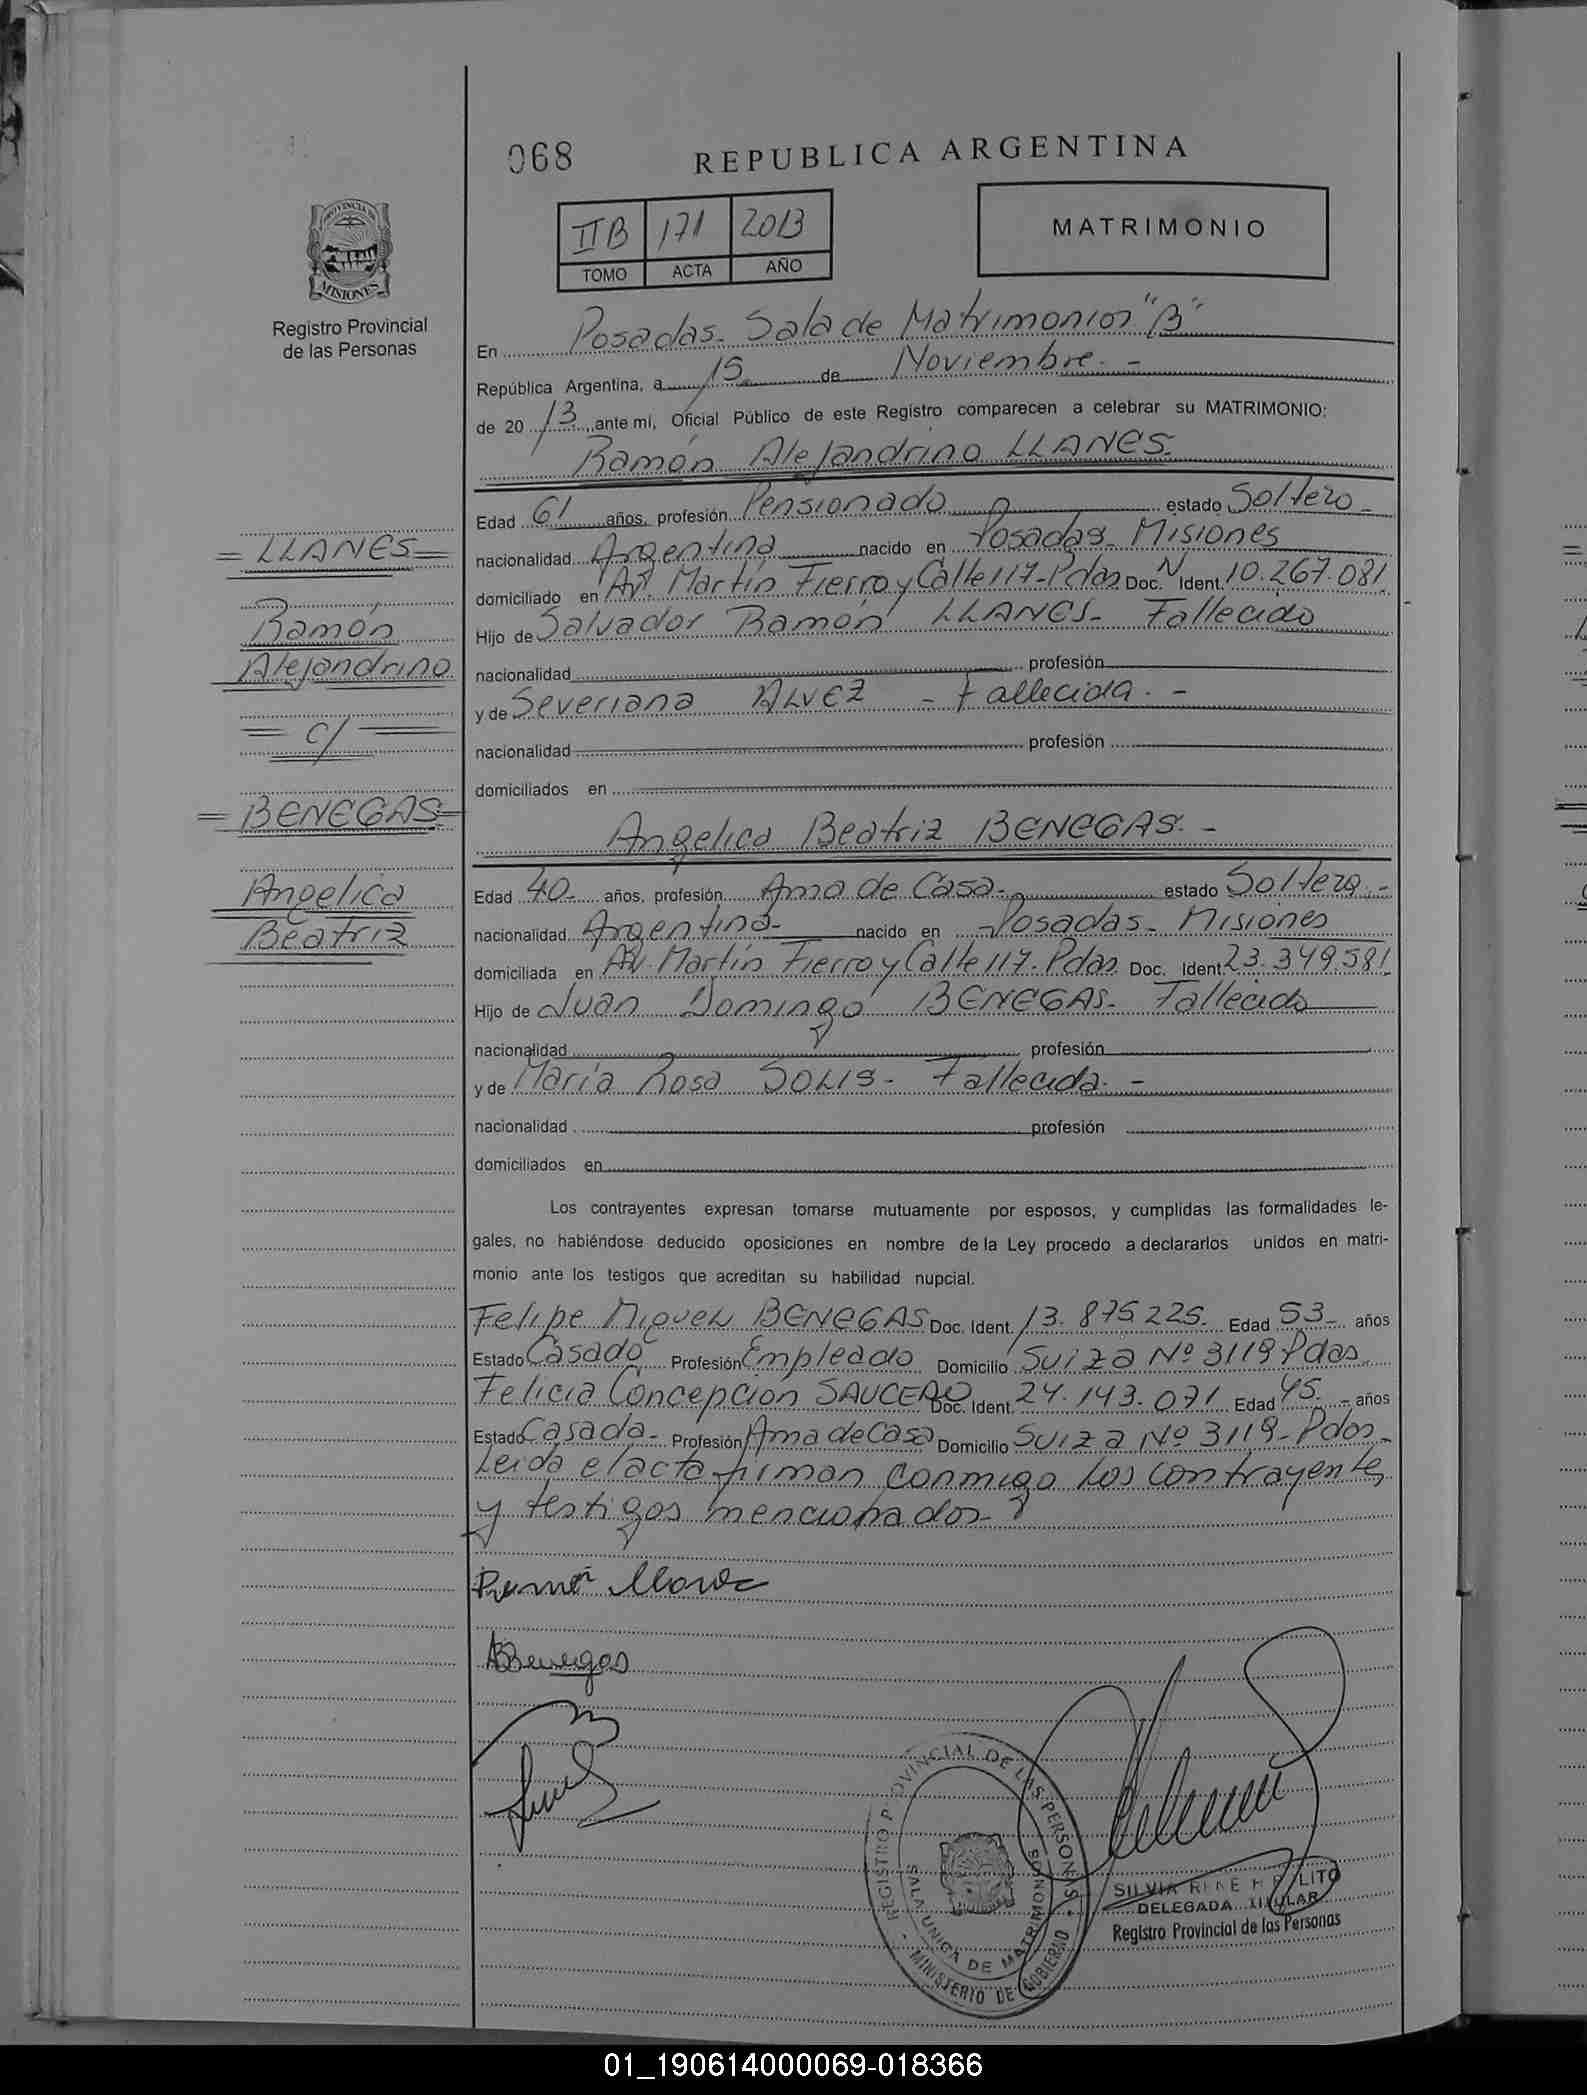 068
REPUBLICA ARGENTINA
IIB 171 2013
TOMO ACTA AÑO
MATRIMONIO
PROVINCIA DE
MISIONES
Registro Provincial
de las Personas
En Posadas- Sala de Matrimonios "B"
República Argentina, a 15 de Noviembre.-
de 2013, ante mí, Oficial Público de este Registro comparecen a celebrar su MATRIMONIO:
Ramón Alejandrino LLANES.
Edad 61 años, profesión Pensionado estado Soltero-
nacionalidad Argentina nacido en Posadas- Misiones
domiciliado en Av. Martín Fierro y Calle 117-Pdas Doc. N Ident. 10.267.081
Hijo de Salvador Ramón LLANES- Fallecido
nacionalidad profesión
y de Severiana ALVEZ - Fallecida.-
nacionalidad profesión
domiciliados en
Angelica Beatriz BENEGAS.-
Edad 40- años, profesión Ama de Casa- estado Soltera.-
nacionalidad Argentina- nacido en Posadas- Misiones
domiciliada en Av. Martín Fierro y Calle 117- Pdas. Doc. Ident. 23.349.581
Hijo de Juan Domingo BENEGAS- Fallecido
nacionalidad profesión
y de María Rosa SOLIS- Fallecida.-
nacionalidad profesión
domiciliados en
= LLANES =
Ramón
Alejandrino
= c/ =
= BENEGAS =
Angelica
Beatriz
Los contrayentes expresan tomarse mutuamente por esposos, y cumplidas las formalidades le-
gales, no habiéndose deducido oposiciones en nombre de la Ley procedo a declararlos unidos en matri-
monio ante los testigos que acreditan su habilidad nupcial.
Felipe Miguel BENEGAS Doc. Ident. 13.875.225. Edad 53- años
Estado Casado Profesión Empleado Domicilio Suiza Nº 3119 Pdas
Felicia Concepción SAUCEDO Doc. Ident. 24.143.071 Edad 45.- años
Estado Casada- Profesión Ama de Casa Domicilio Suiza Nº 3119- Pdas-
Leida el acta firman conmigo los contrayentes
y testigos mencionados-
Ramón Llanes
ABenegas
REGISTRO PROVINCIAL DE LAS PERSONAS
SALA UNICA DE MATRIMONIOS
MINISTERIO DE GOBIERNO
SILVIA RENE
DELEGADA TITULAR
Registro Provincial de las Personas
01_190614000069-018366